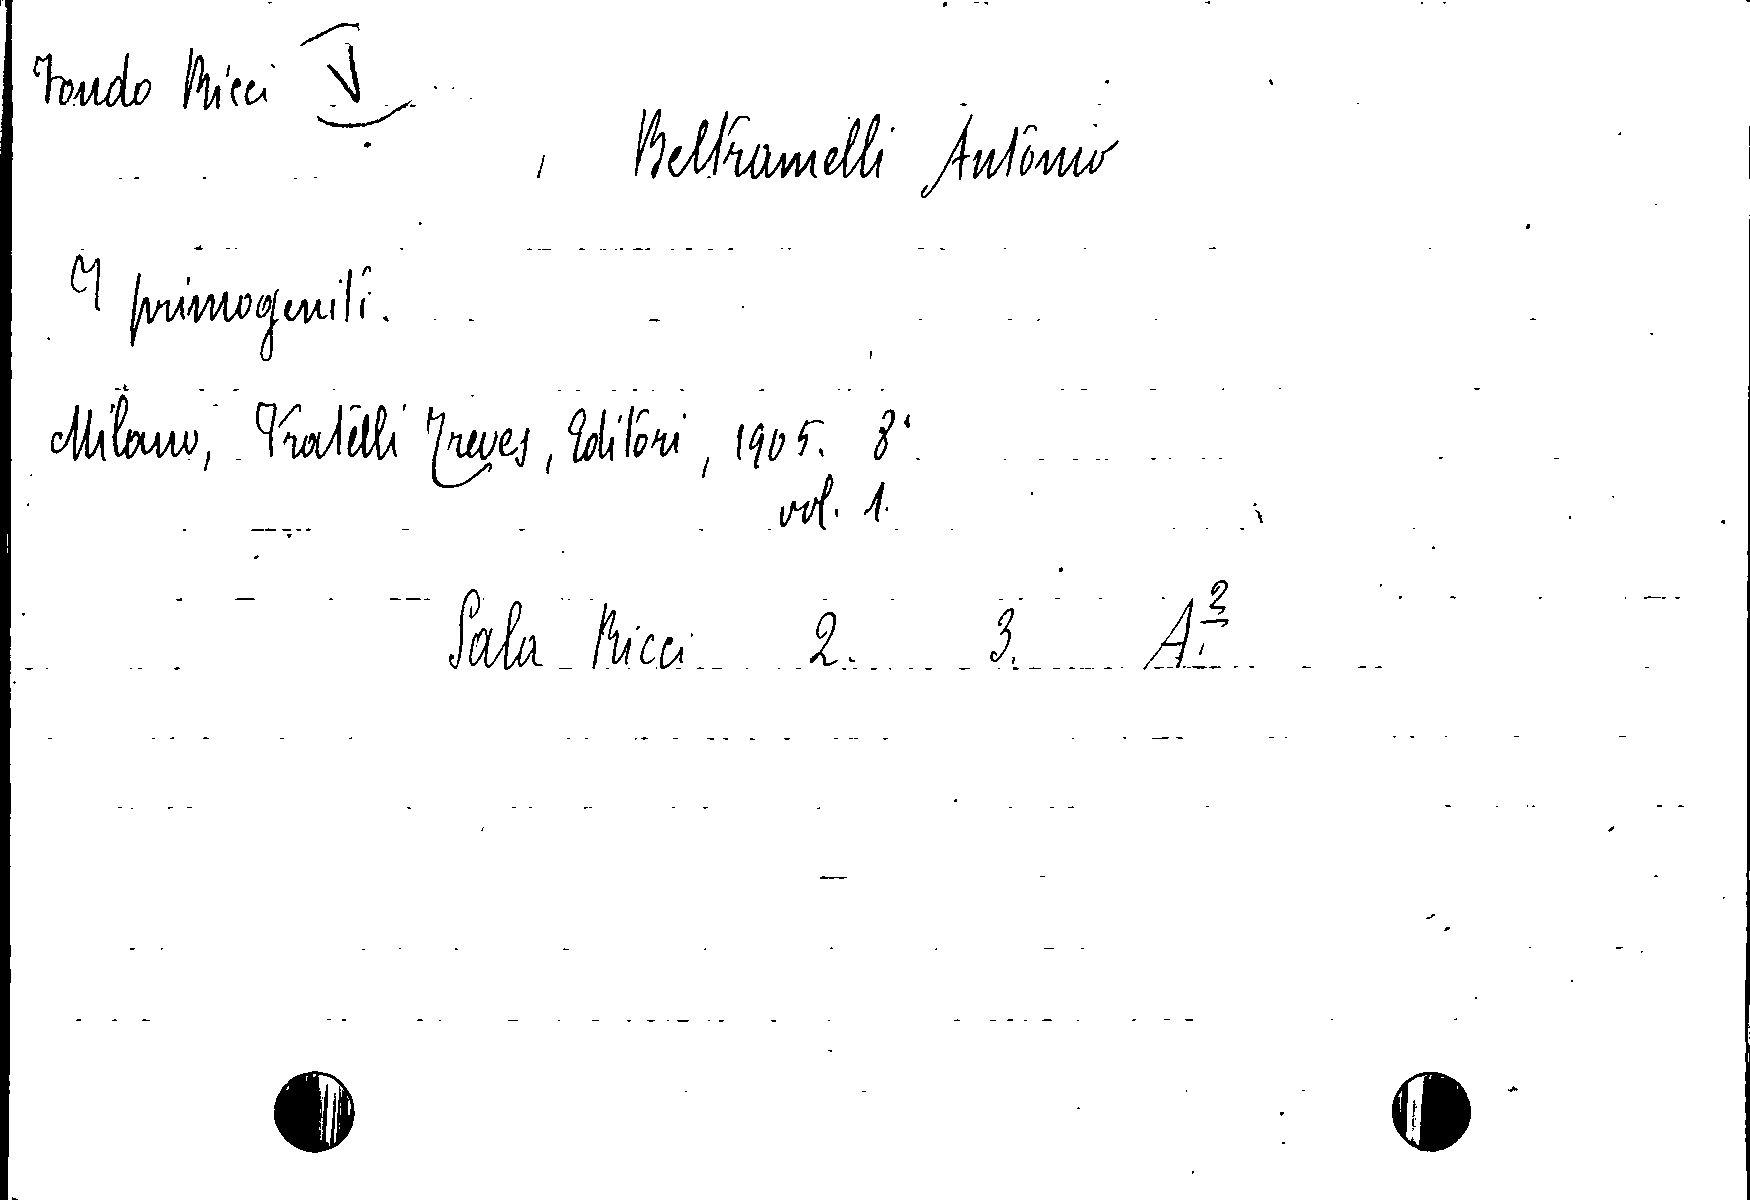 Fondo Ricci V
Beltramelli Antonio
I primogeniti.
Milano, Fratelli Treves, Editori, 1905. 8°
vol. 1.
Sala Ricci 2. 3. A.2